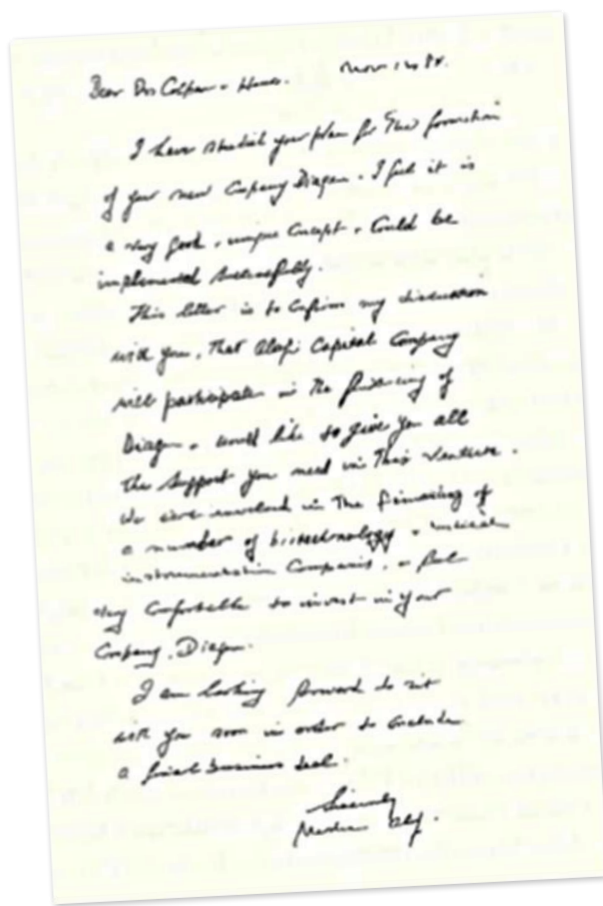 Dear Drs Colpan + Henco. Nov 12 84.
I have studied your plan for The formation
of your new Company Diagen. I feel it is
a very good + unique Concept + Could be
implemented successfully.
This letter is to Confirm my discussion
with you, That Alafi Capital Company
will participate in The financing of
Diagen + would like to give you all
the support you need in This Venture.
We are involved in The financing of
a number of biotechnology + medical
instrumentation Companies, + feel
very Comfortable to invest in your
Company, Diagen.
I am looking forward to sit
with you soon in order to Conclude
a final business deal.
Sincerely
Moshe Alafi.